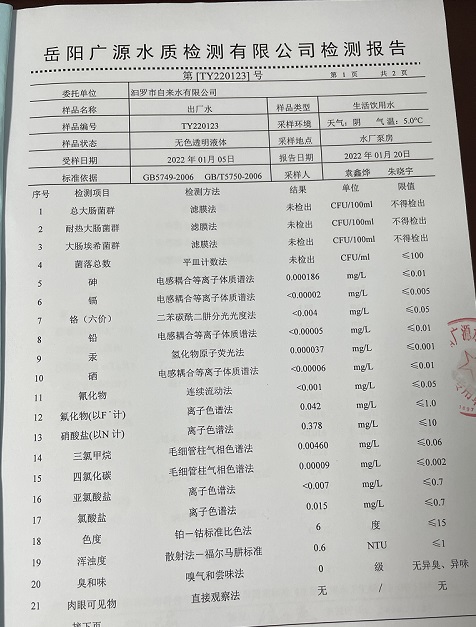 岳阳广源水质检测有限公司检测报告
第 [TY220123] 号 第 1 页 共 2 页
委托单位 汨罗市自来水有限公司
样品名称 出厂水 样品类型 生活饮用水
样品编号 TY220123 采样环境 天气：阴 气温：5.0℃
样品状态 无色透明液体 采样地点 水厂泵房
受样日期 2022 年 01 月 05日 报告日期 2022 年 01 月 20日
标准依据 GB5749-2006 GB/T5750-2006 采样人 袁鑫烨 朱晓宇
序号 检测项目 检测方法 结果 单位 限值
1 总大肠菌群 滤膜法 未检出 CFU/100ml 不得检出
2 耐热大肠菌群 滤膜法 未检出 CFU/100ml 不得检出
3 大肠埃希菌群 滤膜法 未检出 CFU/100ml 不得检出
4 菌落总数 平皿计数法 未检出 CFU/ml ≤100
5 砷 电感耦合等离子体质谱法 0.000186 mg/L ≤0.01
6 镉 电感耦合等离子体质谱法 <0.00002 mg/L ≤0.005
7 铬（六价） 二苯碳酰二肼分光光度法 <0.004 mg/L ≤0.05
8 铅 电感耦合等离子体质谱法 <0.00005 mg/L ≤0.01
9 汞 氢化物原子荧光法 0.000037 mg/L ≤0.001
10 硒 电感耦合等离子体质谱法 <0.00006 mg/L ≤0.01
11 氰化物 连续流动法 <0.001 mg/L ≤0.05
12 氟化物(以F⁻计) 离子色谱法 0.042 mg/L ≤1.0
13 硝酸盐(以N计) 离子色谱法 0.378 mg/L ≤10
14 三氯甲烷 毛细管柱气相色谱法 0.00460 mg/L ≤0.06
15 四氯化碳 毛细管柱气相色谱法 0.00009 mg/L ≤0.002
16 亚氯酸盐 离子色谱法 <0.007 mg/L ≤0.7
17 氯酸盐 离子色谱法 0.015 mg/L ≤0.7
18 色度 铂－钴标准比色法 6 度 ≤15
19 浑浊度 散射法－福尔马肼标准 0.6 NTU ≤1
20 臭和味 嗅气和尝味法 0 级 无异臭、异味
21 肉眼可见物 直接观察法 无 / 无
接下页
广源水